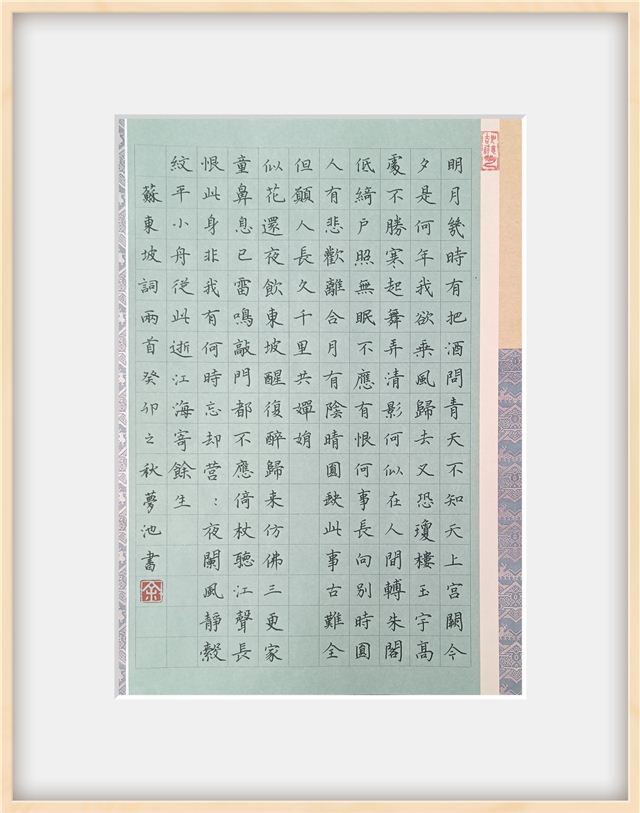 明月幾時有把酒問青天不知天上宮闕今
夕是何年我欲乘風歸去又恐瓊樓玉宇高
處不勝寒起舞弄清影何似在人間轉朱閣
低綺戶照無眠不應有恨何事長向別時圓
人有悲歡離合月有陰晴圓缺此事古難全
但顚人長久千里共嬋娟
似花還夜飲東坡醒復醉歸来仿佛三更家
童鼻息已雷鳴敲門都不應倚杖聽江聲長
恨此身非我有何時忘却营：夜闌風靜縠
紋平小舟從此逝江海寄餘生
蘇東坡詞兩首癸卯之秋夢池書
余